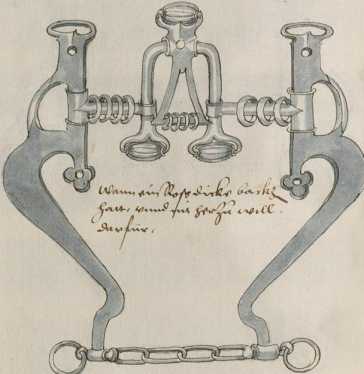 Wann ein Roß dicke backh
hatt, vnnd nit herzu will.
darfür.